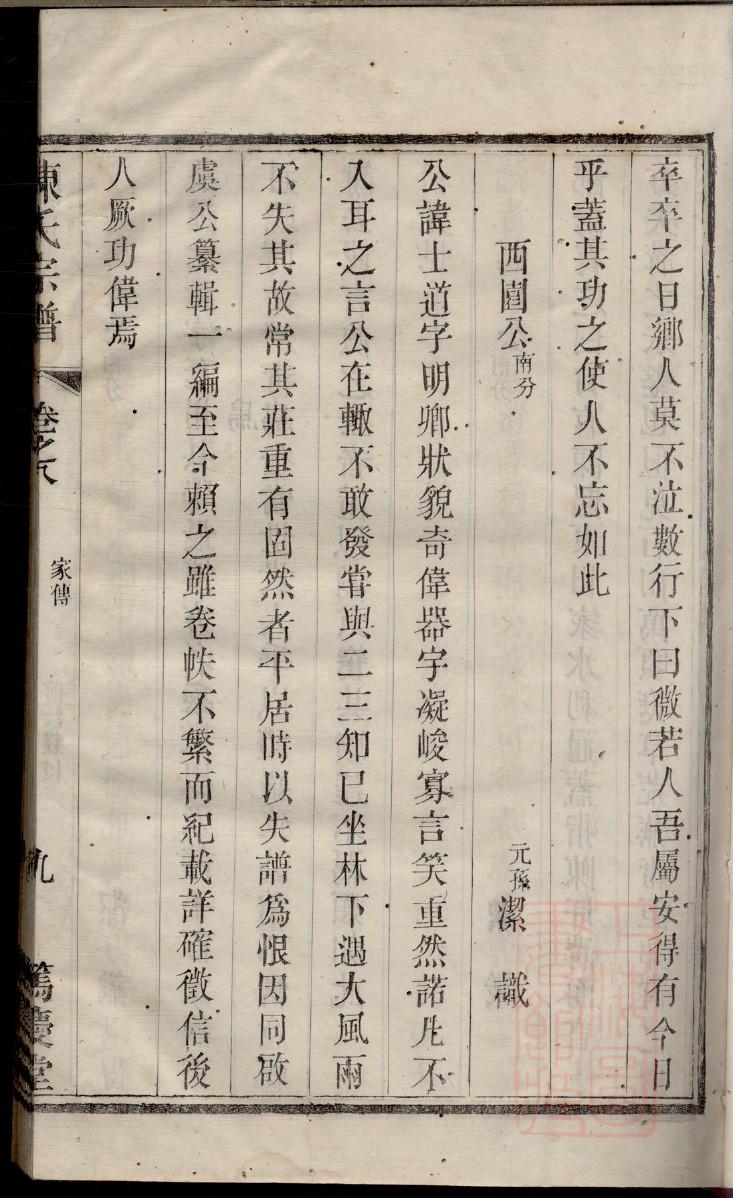 卒卒之日鄉人莫不泣數行下曰微若人吾屬安得有今日
乎蓋其功之使人不忘如此
西園公南分
元孫潔識
公諱士道字明卿狀貌奇偉器宇凝峻寡言笑重然諾凡不
入耳之言公在輙不敢發甞與二三知已坐林下遇大風雨
不失其故常其莊重有固然者平居時以失譜爲恨因同啟
虞公纂輯一編至今賴之雖卷帙不繁而紀載詳確徵信後
人厥功偉焉
陳氏宗譜
卷之八
家傳
九
篤慶堂